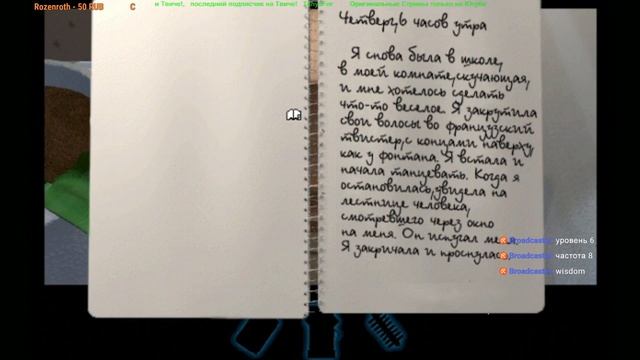 Rozenroth - 50 RUB
С
и Твиче!, последний подписчик на Твиче!
Оригинальные Стримы только на Ютубе
Четверг, 6 часов утра
Я снова была в школе,
в моей комнате, скучающая,
и мне хотелось сделать
что-то веселое. Я закрутила
свои волосы во французский
твистер, с концами наверху,
как у фонтана. Я встала и
начала танцевать. Когда я
остановилась, увидела на
лестнице человека,
смотревшего через окно
на меня. Он испугал
Я закричала и проснулас
Broadcast уровень 6
Broadcast частота 8
Broadcast wisdom